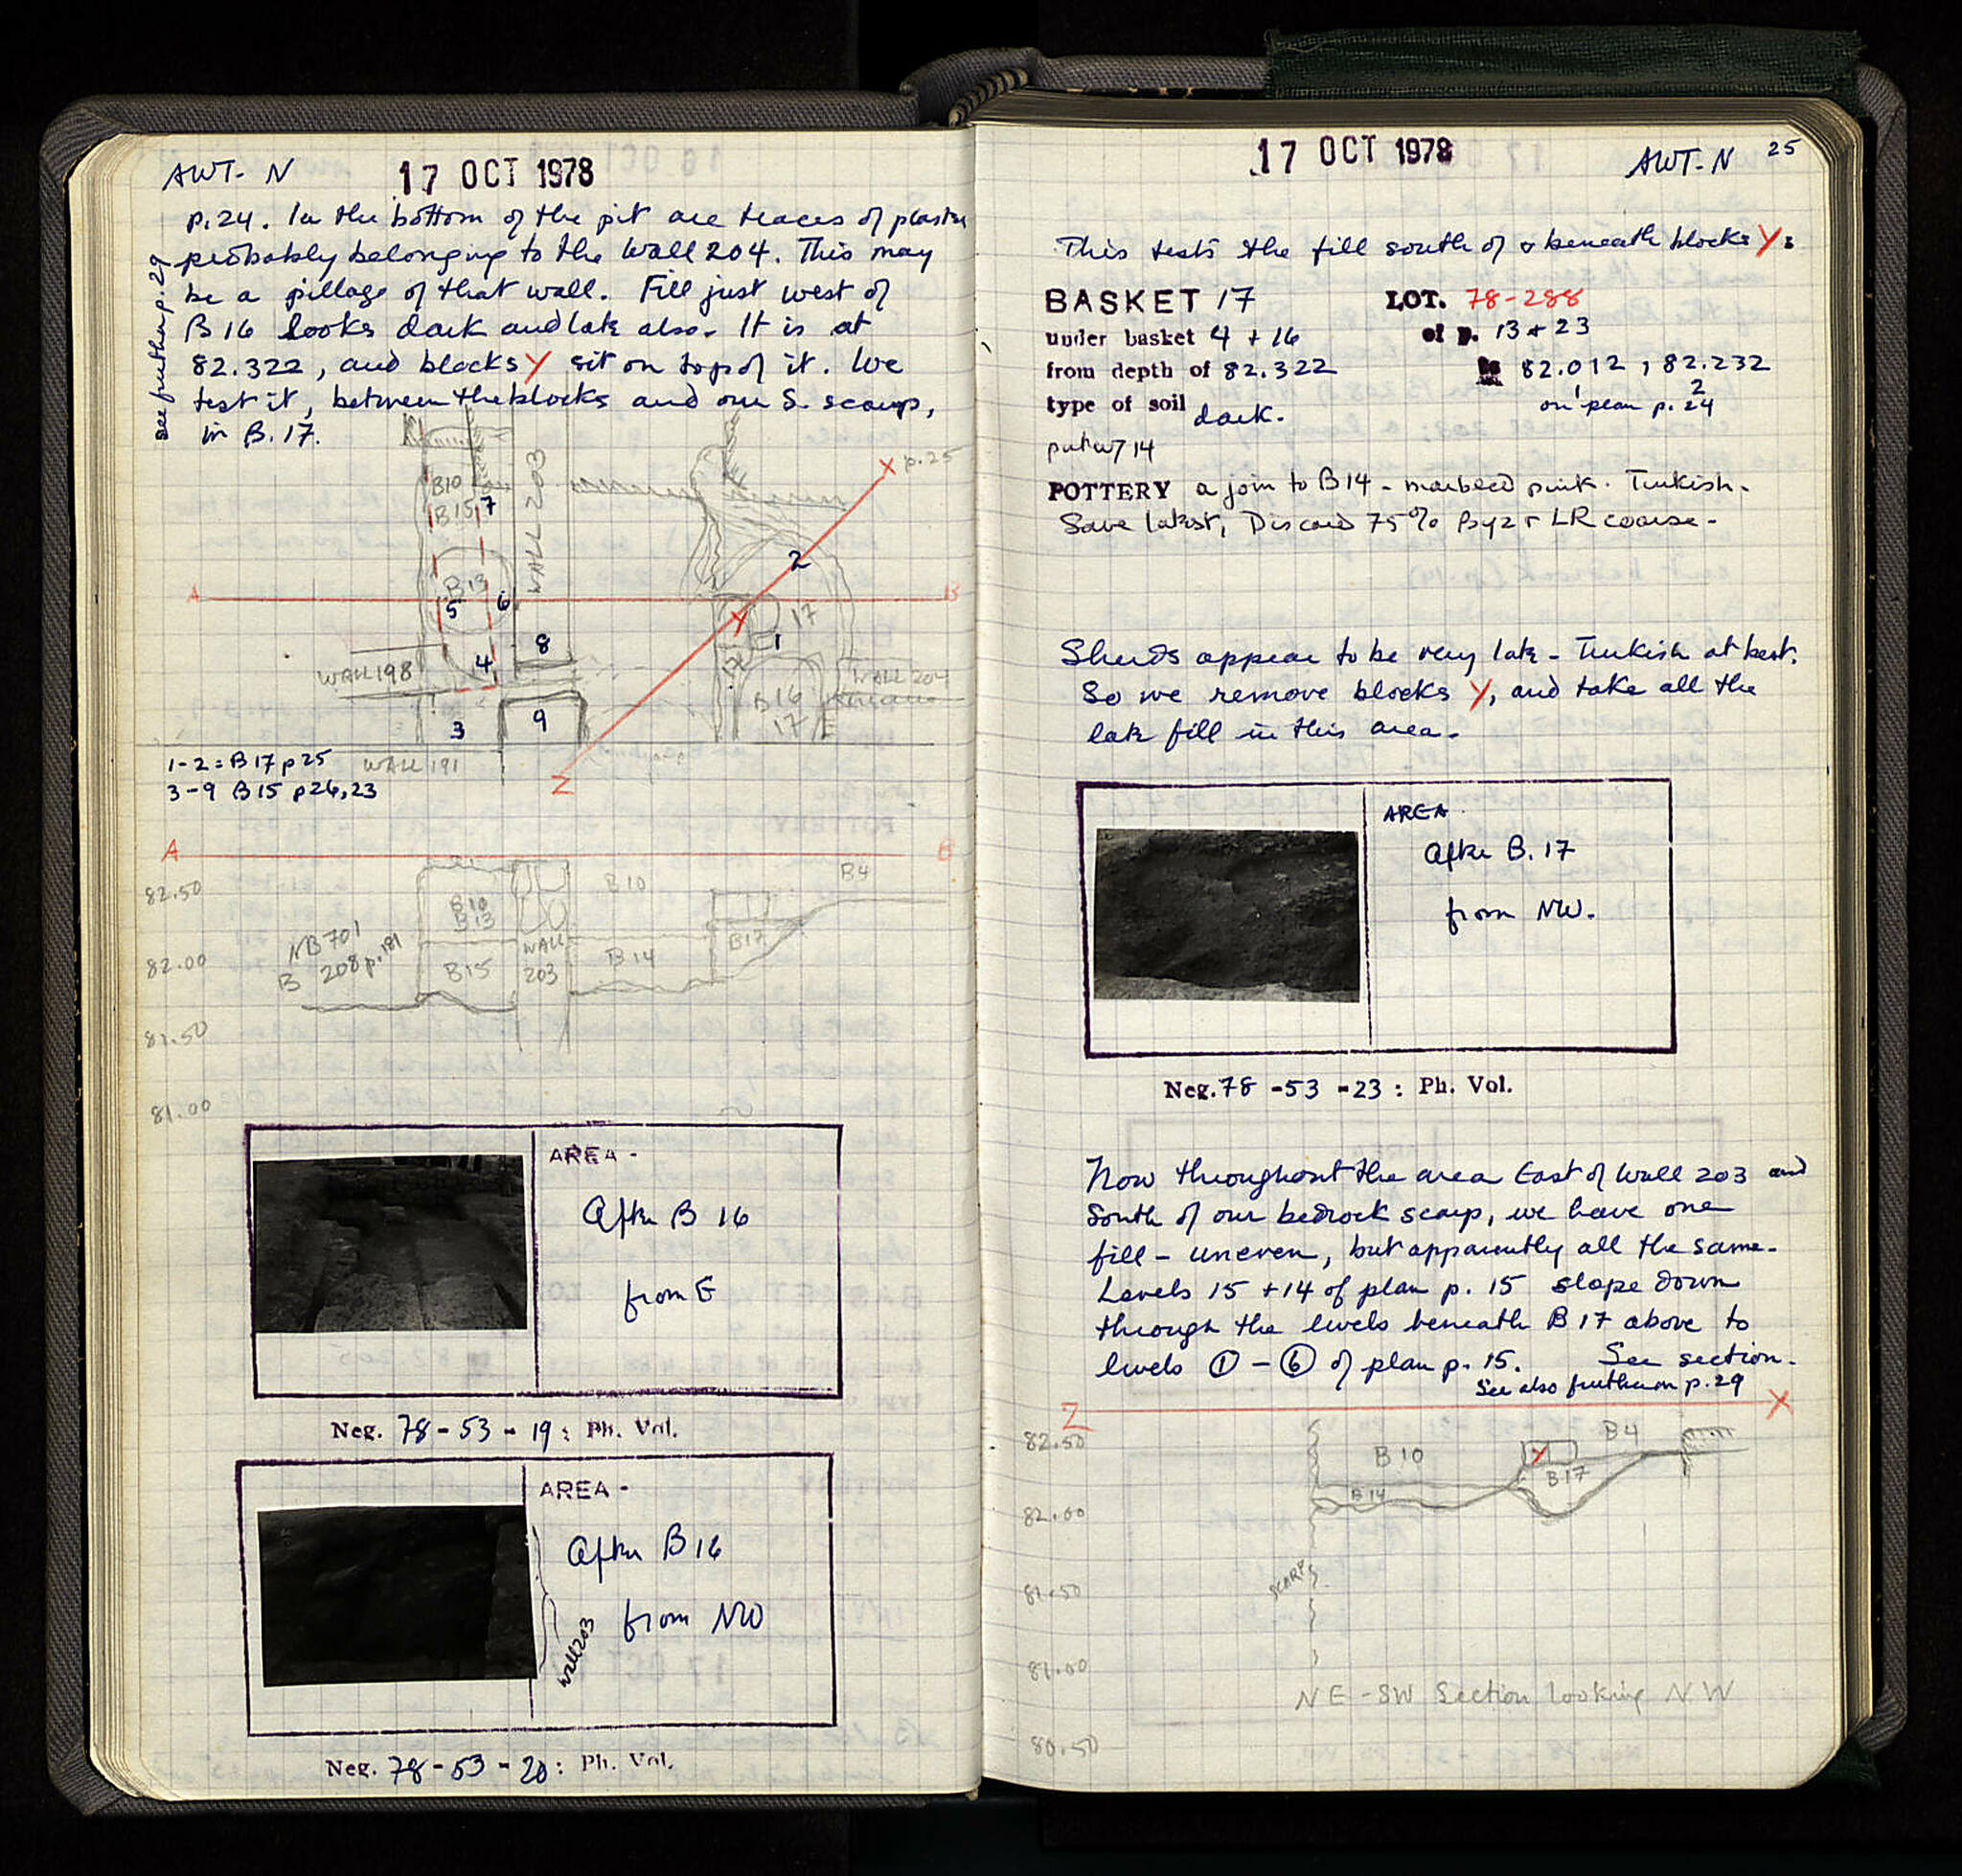 AWT-N 17 OCT 1978
see further p.29
p.24. In the bottom of the pit are traces of plaster
probably belonging to the Wall 204. This may
be a pillage of that wall. Fill just west of
B 16 looks dark and late also. It is at
82.322, and blocks Y sit on top of it. We
test it, between the blocks and our S. scarp,
in B.17.
X p.25
B10
B15 7
WALL 203
2
A B
B13
5 6
Y 17
8 1
WALL 198 4
WALL 204
B16
17
3 9
1-2 = B17 p25 WALL 191
3-9 B15 p26,23
Z
A B
82.50
B10
B13
B10
B4
NB 701
B 208 p.181
82.00
B15
WALL
203
B14
B17
81.50
81.00
AREA -
After B 16
from E
Neg. 78-53-19: Ph. Vol.
AREA -
After B16
from NW
Wall 203
Neg. 78-53-20: Ph. Vol.
17 OCT 1978 AWT-N 25
This tests the fill south of & beneath blocks Y:
BASKET 17 LOT. 78-288
under basket 4 + 16 of p. 13 + 23
from depth of 82.322 to 82.012, 82.232
1 2
type of soil dark. on plan p. 24
put w/ 14
POTTERY a join to B14 - marbled pink. Turkish.
Save latest, Discard 75% Byz & LR coarse.
Sherds appear to be very late - Turkish at best.
So we remove blocks Y, and take all the
late fill in this area.
AREA
After B.17
from NW.
Neg. 78-53-23: Ph. Vol.
Now throughout the area East of Wall 203 and
South of our bedrock scarp, we have one
fill - uneven, but apparently all the same.
Levels 15 + 14 of plan p. 15 slope down
through the levels beneath B17 above to
levels ① - ⑥ of plan p. 15. See section.
See also further on p.29
Z X
82.50
B10
Y
B4
B14
B17
82.00
81.50
SCARP
81.00
NE-SW Section looking NW
80.50